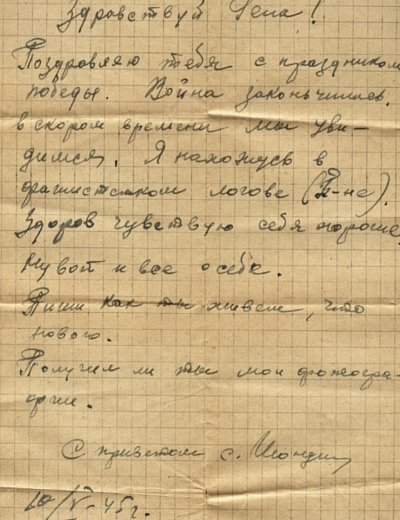 Здравствуй Лена!
Поздравляю тебя с праздником
победы. Война законьчилась.
в скором времени мы уви-
димся. Я нахожусь в
фашистском логове (Б-не).
Здоров чувствую себя хорошо.
Ну вот и все о себе.
Пиши как ты живеш, что
нового.
Получил ли ты мои фотогра-
фии.
С приветом с.
10/V-45г.